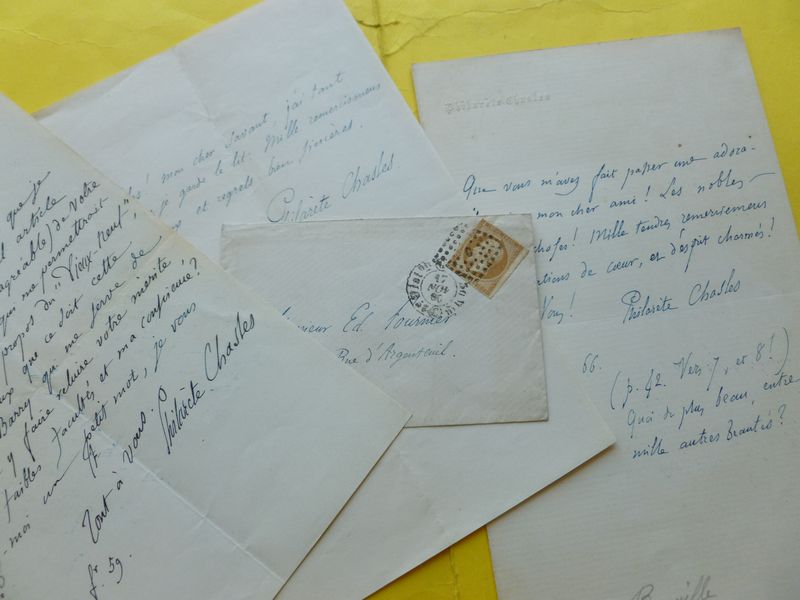 que je
article
agréable) de votre
qui me permettrait
propos du "Vieux neuf",
que ce doit cette
Barry qui me serve de
y faire reluire votre mérite
faibles facultés et ma confrérie?
-moi un petit mot, je vous
Tout à vous. Philarète Chasles
59
mon cher savant, j'ai tant
je garde le lit. Mille remerciemens
et regrets bien sincères.
Philarète Chasles
Monsieur Ed. Fournier
Rue d'Argenteuil.
Philarète Chasles
Que vous m'avez fait passer une adora-
mon cher ami! Les nobles
choses! Mille tendres remerciemens
de cœur, et d'esprit charmés!
Vous!
Philarète Chasles
66.
(p. 42. Vers 7, et 8!)
Quoi de plus beau, entre
mille autres Beautés?